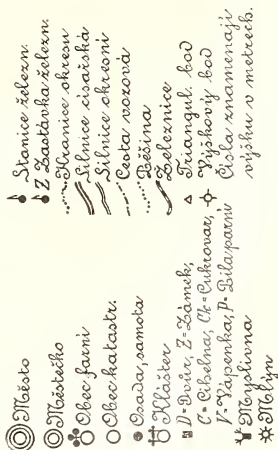 Město
Městečko
Obec farní
Obec katastr.
Osada, samota
Klášter
D=Dvůr, Z=Zámek,
C=Cihelna, Ck=Cukrovar,
V=Vápenka, P=Pila parní
Myslivna
Mlýn
Stanice železn.
Z Zastávka železn.
Hranice okresu
Silnice císařská
Silnice okresní
Cesta vozová
Pěšina
Železnice
Triangul. bod
Výškový bod
Čísla znamenají
výšku v metrech.